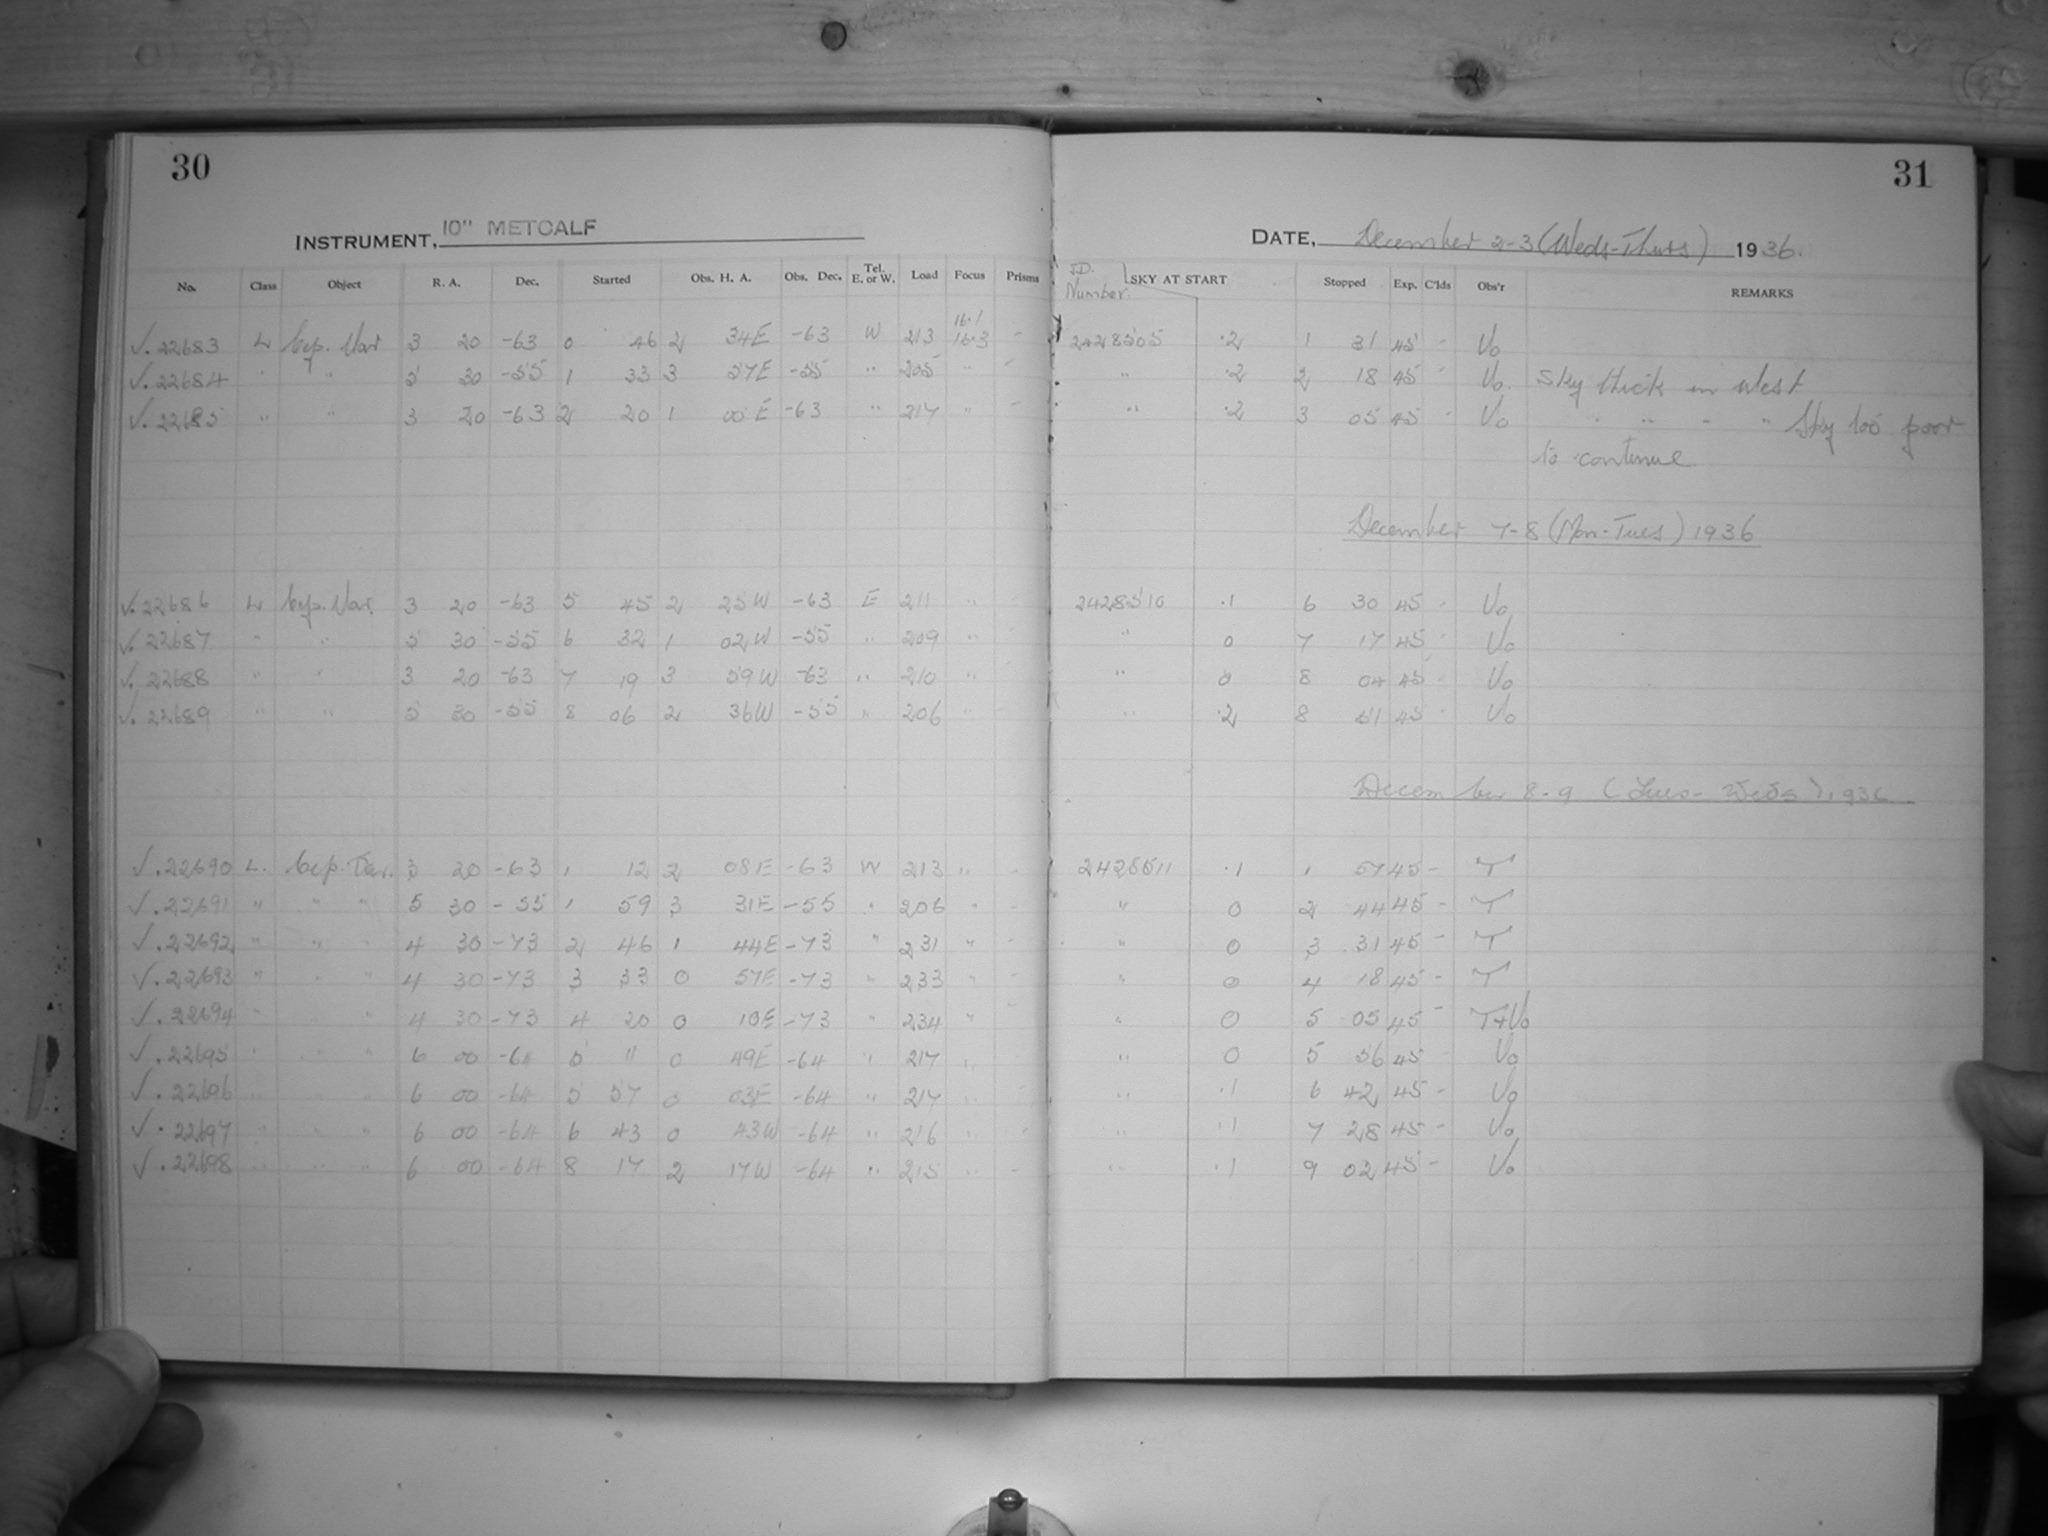 30
31
INSTRUMENT, 10" METCALF
DATE, December 2-3 (Weds-Thurs) 1936.
No. Class Object R. A. Dec. Started Obs. H. A. Obs. Dec. Tel. E. or W. Load Focus Prisms J.D. Number. SKY AT START Stopped Exp. C'lds Obs'r REMARKS
√. 22683 L 3 20 -63 0 46 2 34E -63 W 213 16.1 16.3 - 2428505 .2 1 31 45 - Vo
√. 22684 " " 5 30 -55 1 33 3 57E -55 " 205 " - " .2 2 18 45 - Vo. Sky thick in west
√. 22685 " " 3 20 -63 2 20 1 00E -63 " 217 " - " .2 3 05 45 - Vo " " " " Sky too poor
to continue
December 7-8 (Mon-Tues) 1936
√. 22686 L 3 20 -63 5 45 2 25W -63 E 211 " - 2428510 .1 6 30 45 - Vo
√. 22687 " " 5 30 -55 6 32 1 02W -55 " 209 " - " 0 7 17 45 - Vo
√. 22688 " " 3 20 -63 7 19 3 59W -63 " 210 " - " 0 8 04 45 - Vo
√. 22689 " " 5 30 -55 8 06 2 36W -55 " 206 " - " .2 8 51 45 - Vo
December 8-9 (Tues-Weds) 1936
√. 22690 L. 3 20 -63 1 12 2 08E -63 W 213 " - 2428511 .1 1 57 45 - T
√. 22691 " " " 5 30 -55 1 59 3 31E -55 " 206 " - " 0 2 44 45 - T
√. 22692 " " " 4 30 -73 2 46 1 44E -73 " 231 " - " 0 3 31 45 - T
√. 22693 " " " 4 30 -73 3 33 0 57E -73 " 233 " - " 0 4 18 45 - T
√. 22694 " " " 4 30 -73 4 20 0 10E -73 " 234 " - " 0 5 05 45 - T+Vo
√. 22695 " " " 6 00 -64 5 11 0 49E -64 " 217 " " 0 5 56 45 - Vo
√. 22696 " " " 6 00 -64 5 57 0 03E -64 " 217 " - " .1 6 42 45 - Vo
√. 22697 " " " 6 00 -64 6 43 0 43W -64 " 216 " - " .1 7 28 45 - Vo
√. 22698 " " " 6 00 -64 8 17 2 17W -64 " 215 " - " .1 9 02 45 - Vo